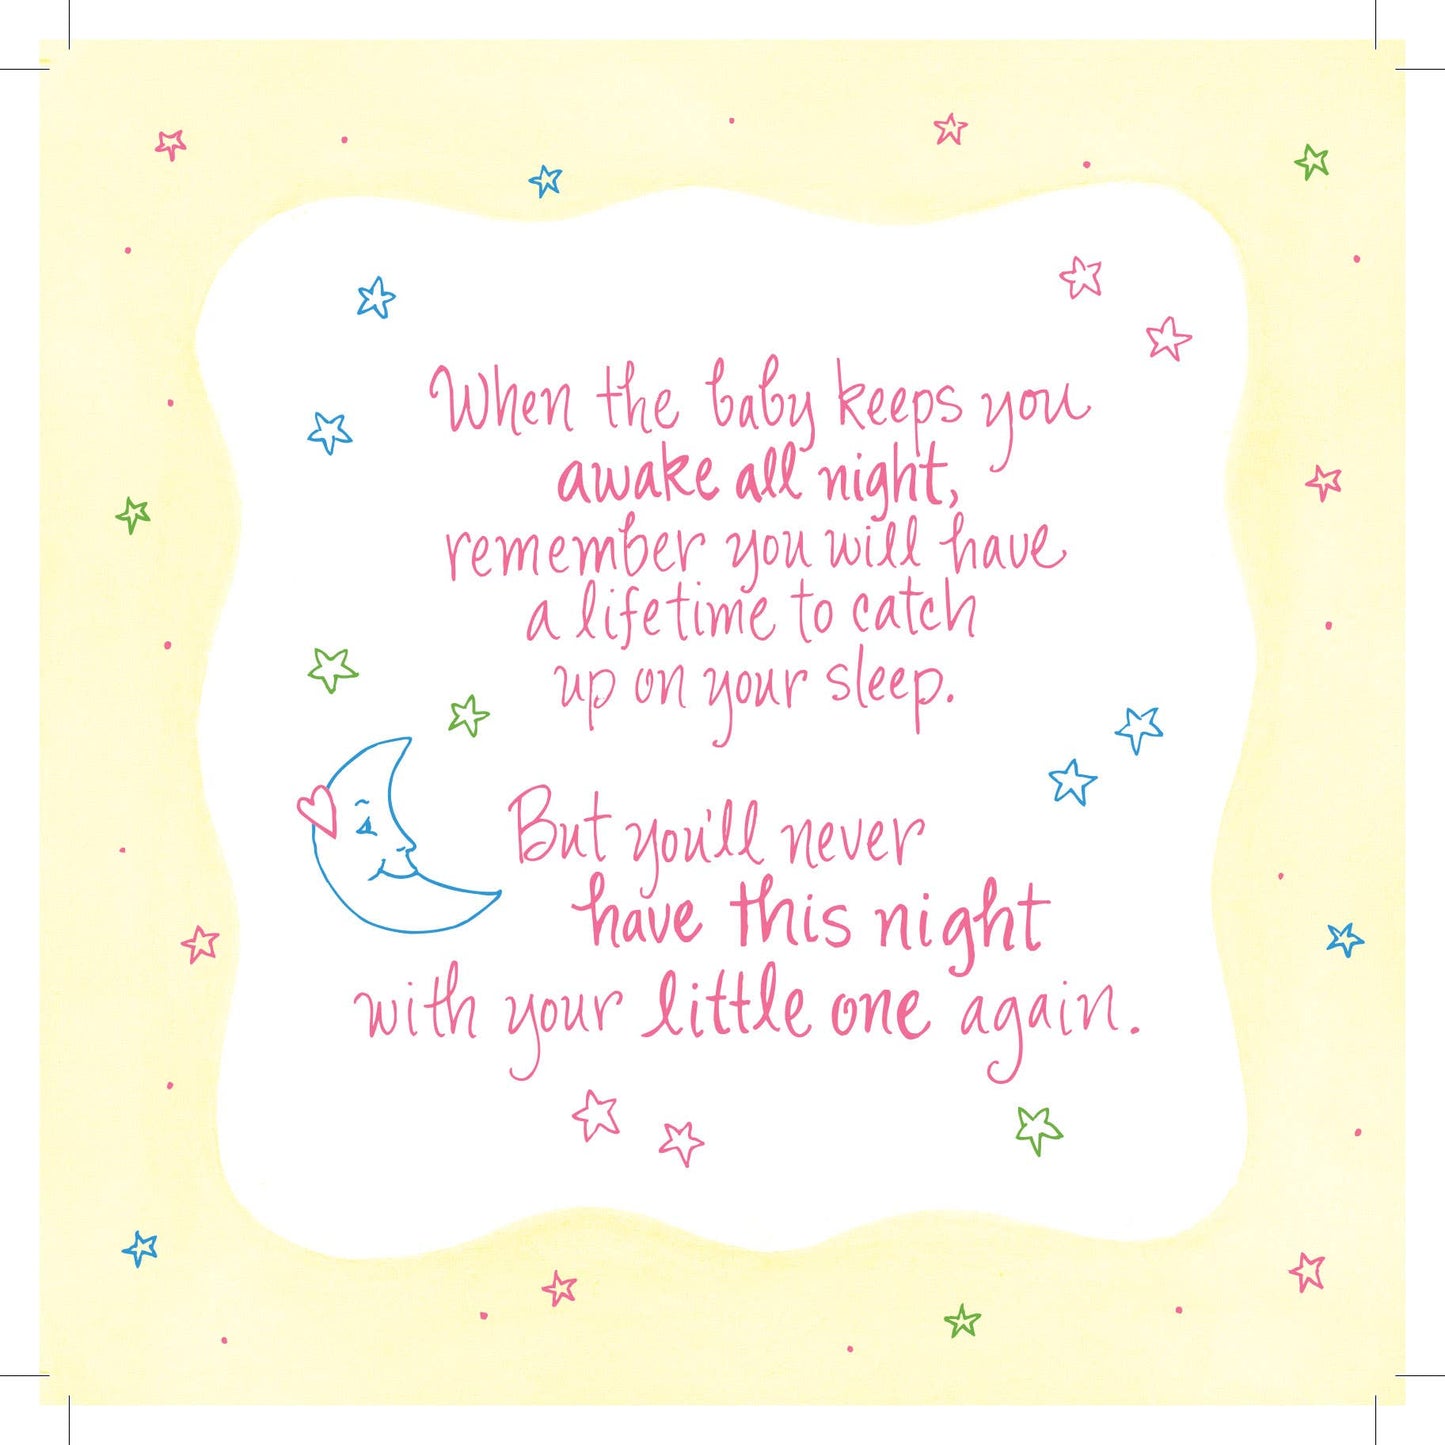 When the baby keeps you
awake all night,
remember you will have
a lifetime to catch
up on your sleep.
But you'll never
have this night
with your little one again.